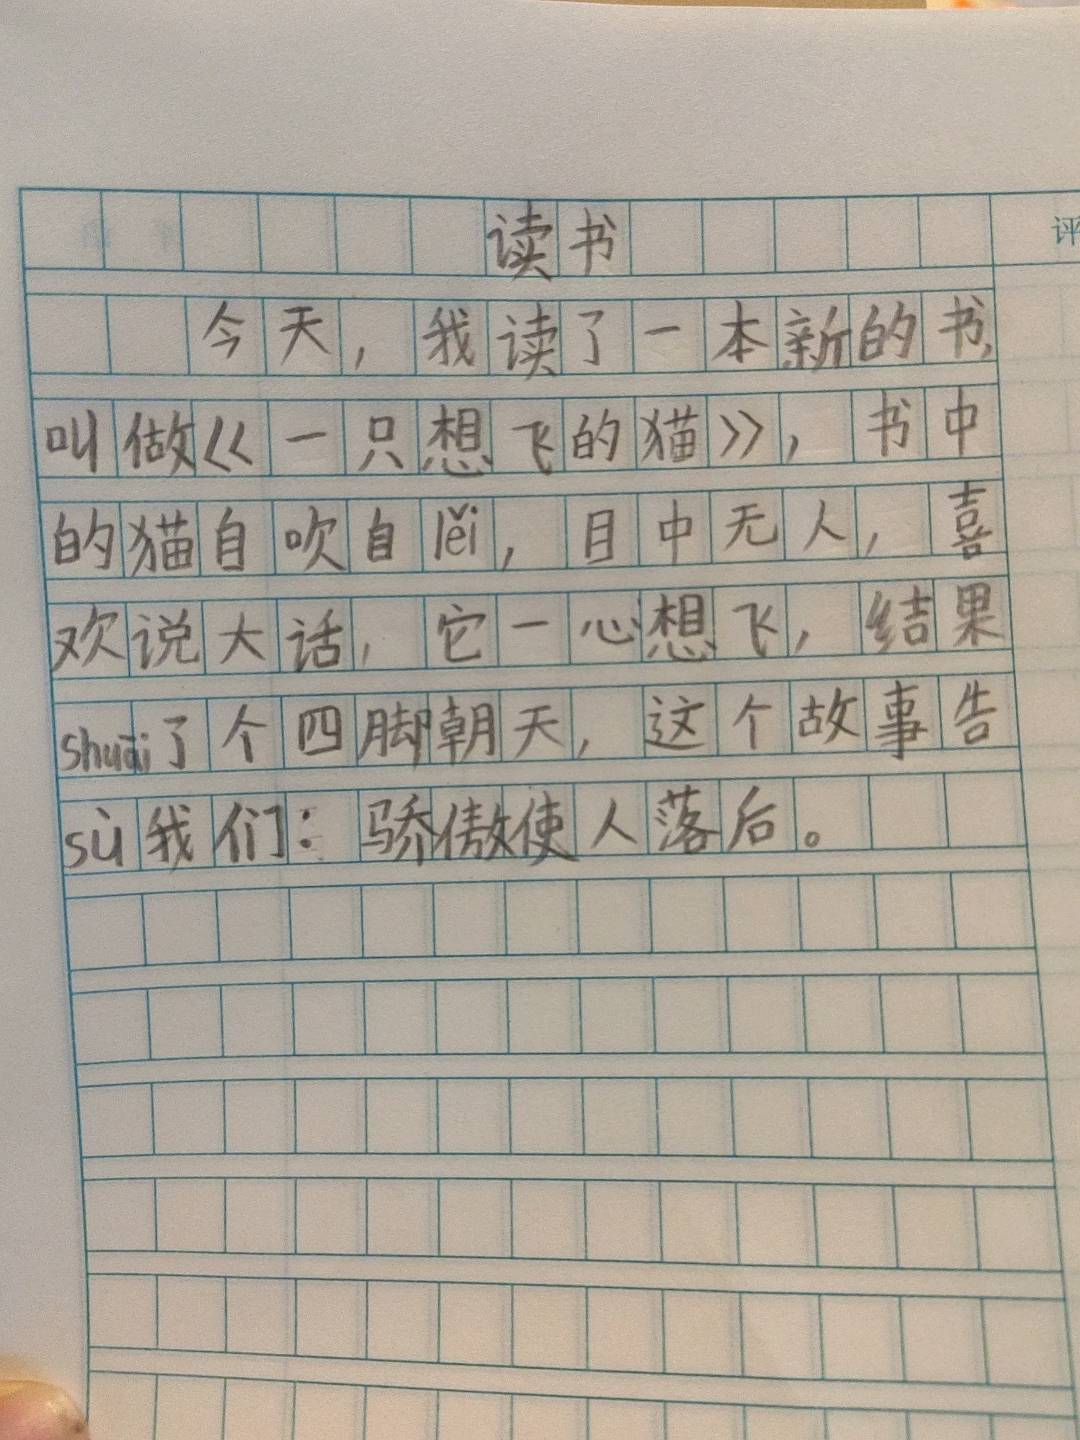 读书
评
今天，我读了一本新的书，
叫做《一只想飞的猫》，书中
的猫自吹自lěi，目中无人，喜
欢说大话，它一心想飞，结果
shuāi了个四脚朝天，这个故事告
sù我们：骄傲使人落后。